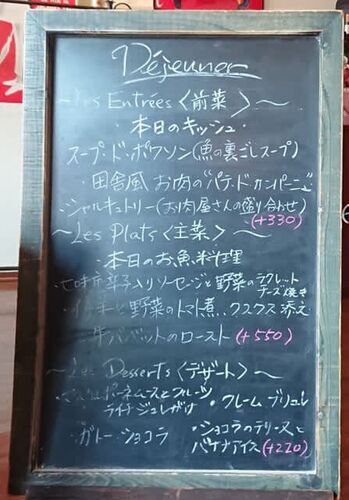 Déjeuner
~Les Entrées〈前菜〉~
・本日のキッシュ・
スープ・ド・ポワソン(魚の裏ごしスープ)
・田舎風 お肉の"パテ・ド・カンパーニュ"
・シャルキュトリー(お肉屋さんの盛り合わせ)
(+330)
~Les Plats〈主菜〉~
・本日のお魚料理
・七味唐辛子入りソーセージと野菜のラクレットチーズ焼き
と野菜のトマト煮 クスクス添え
牛バベットのロースト (+550)
~Les Desserts〈デザート〉~
・クレーム・ブリュレ
・ガトー・ショコラ
・ショコラのテリーヌと
バナナアイス(+220)